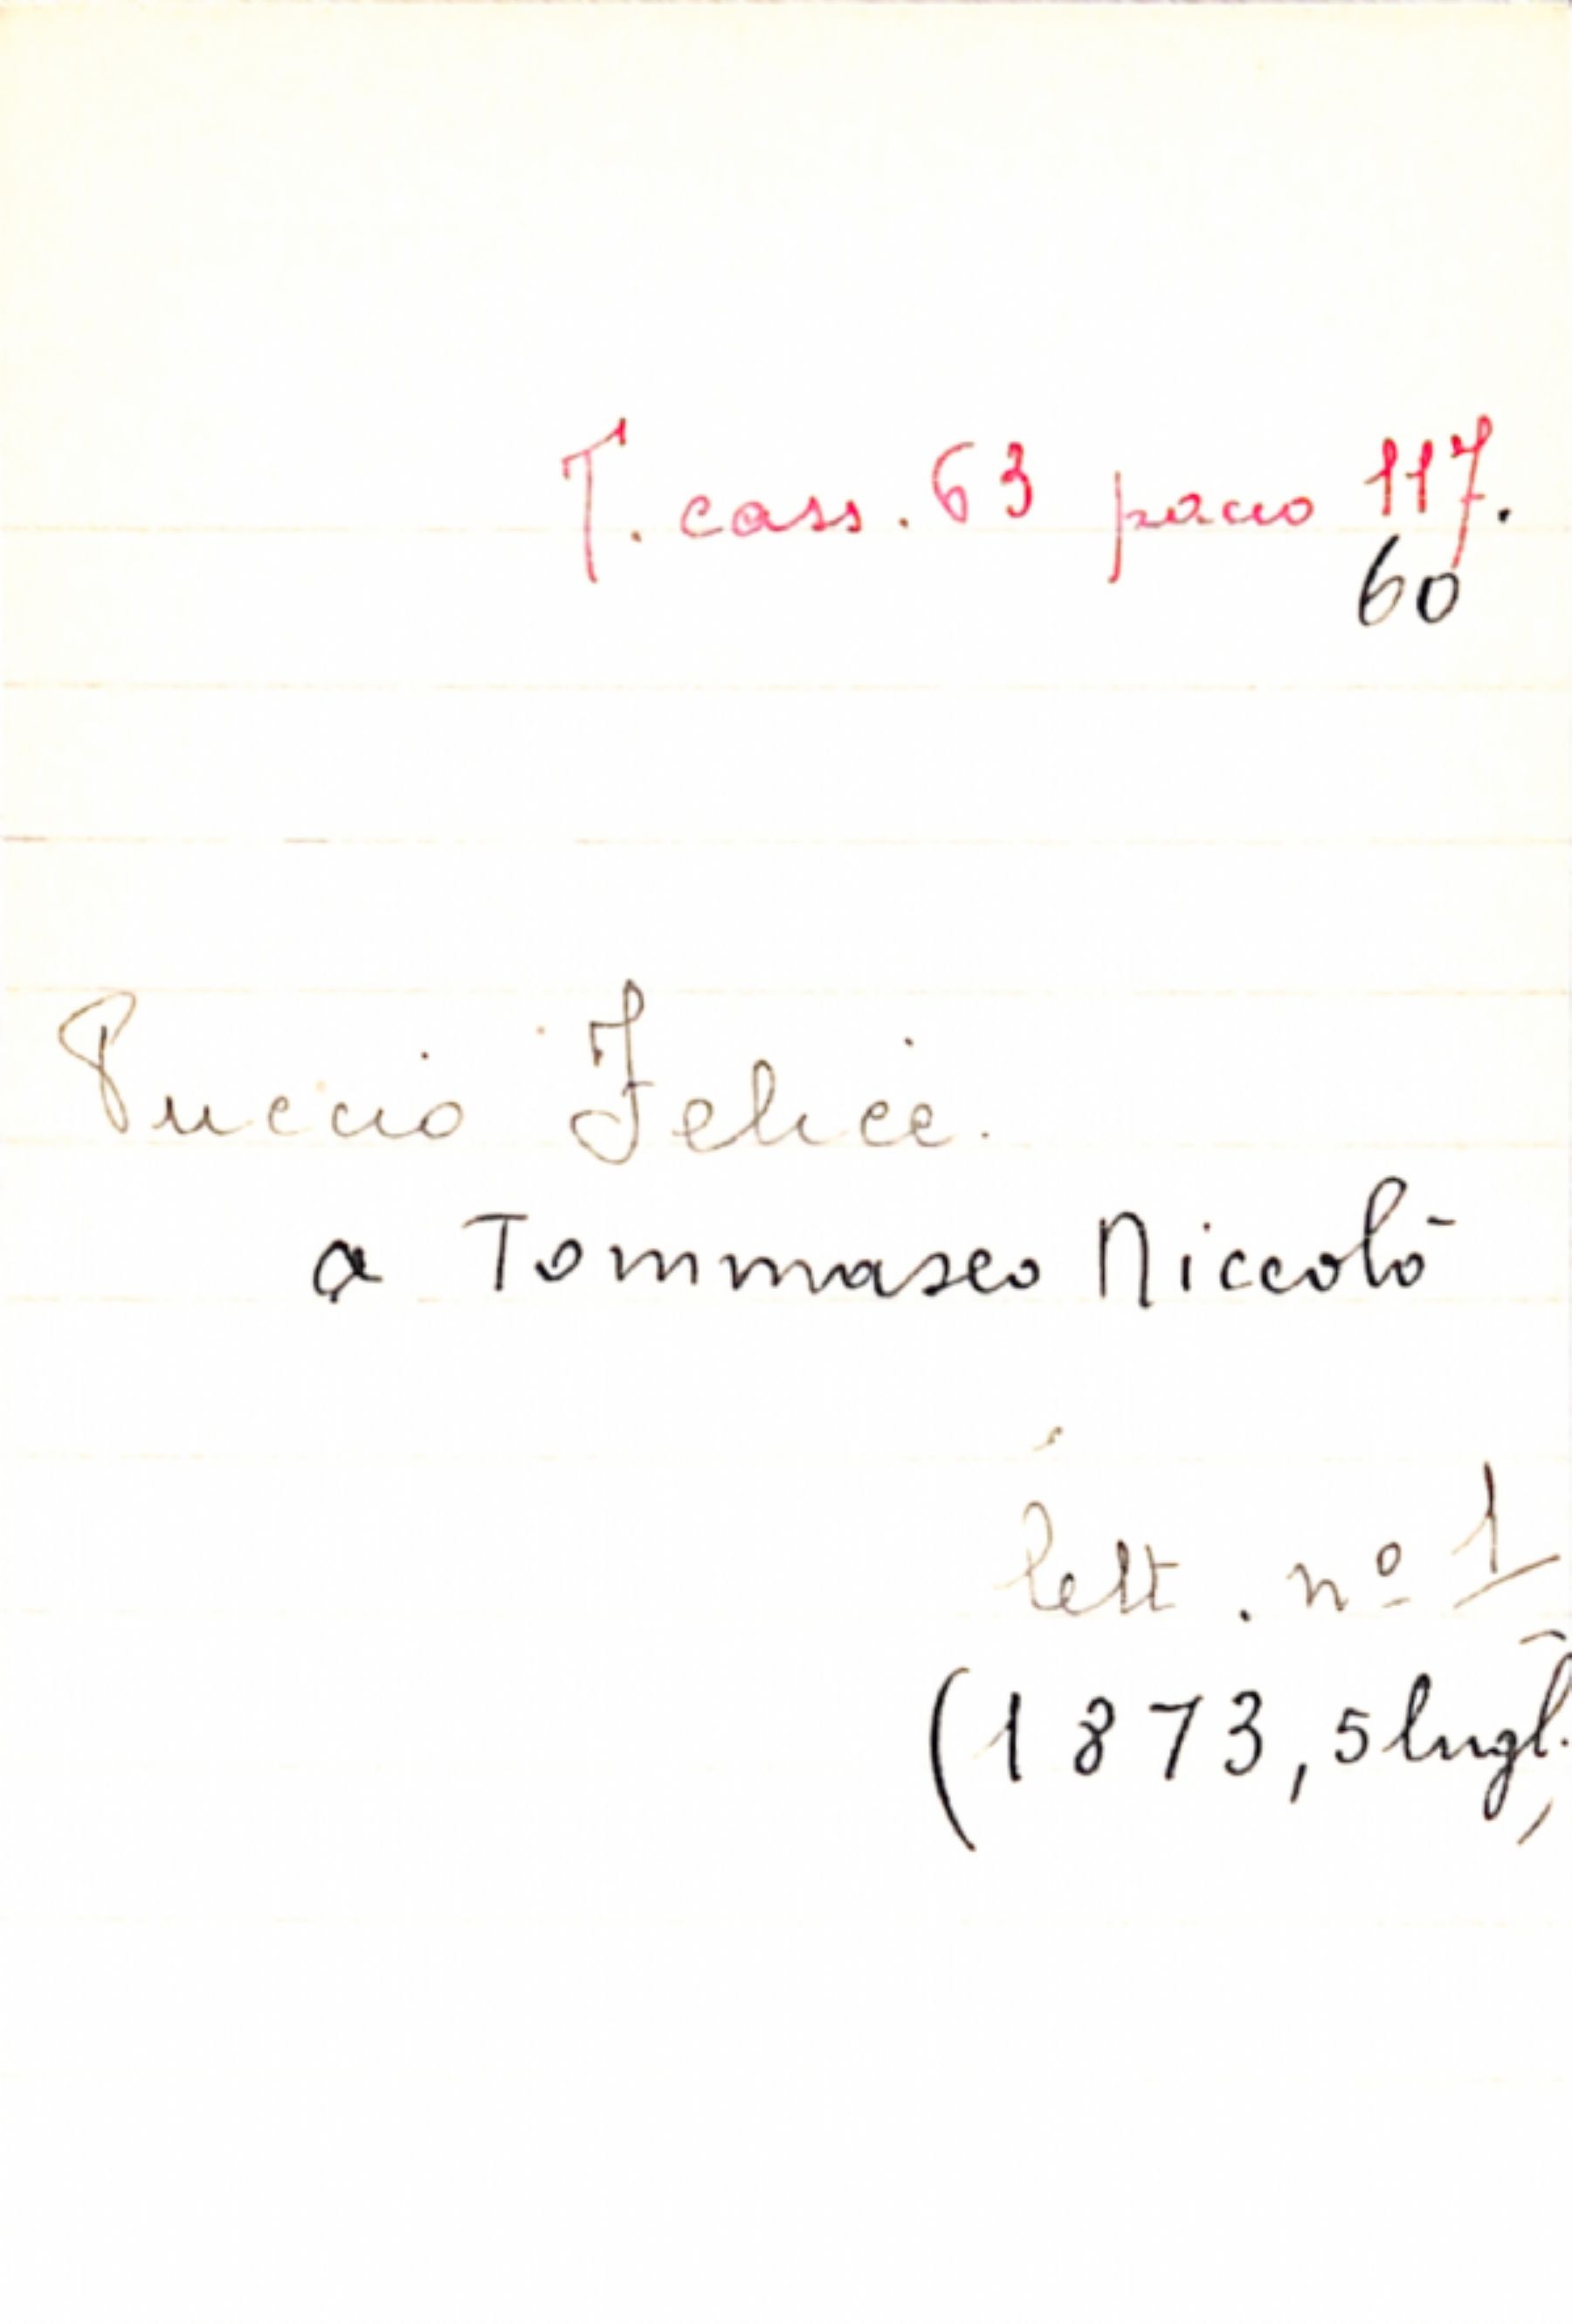 T. cass. 63 pacco 117.
60
Puccio Felice.
a Tommaseo Niccolò
lett. nº 1
(1873, 5 lugl.)